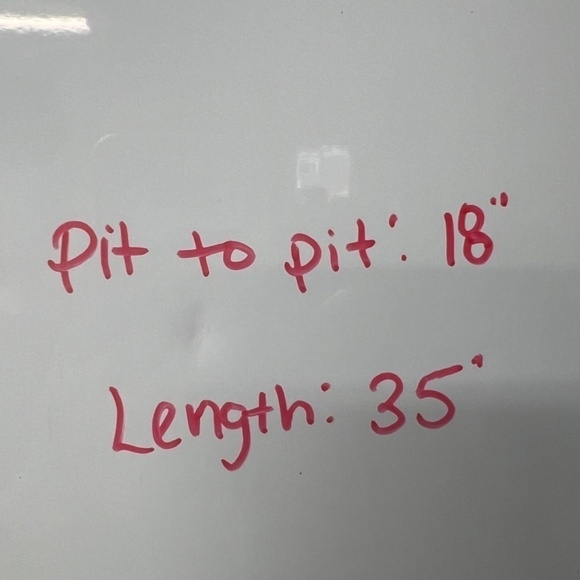 Pit to pit: 18"
Length: 35"